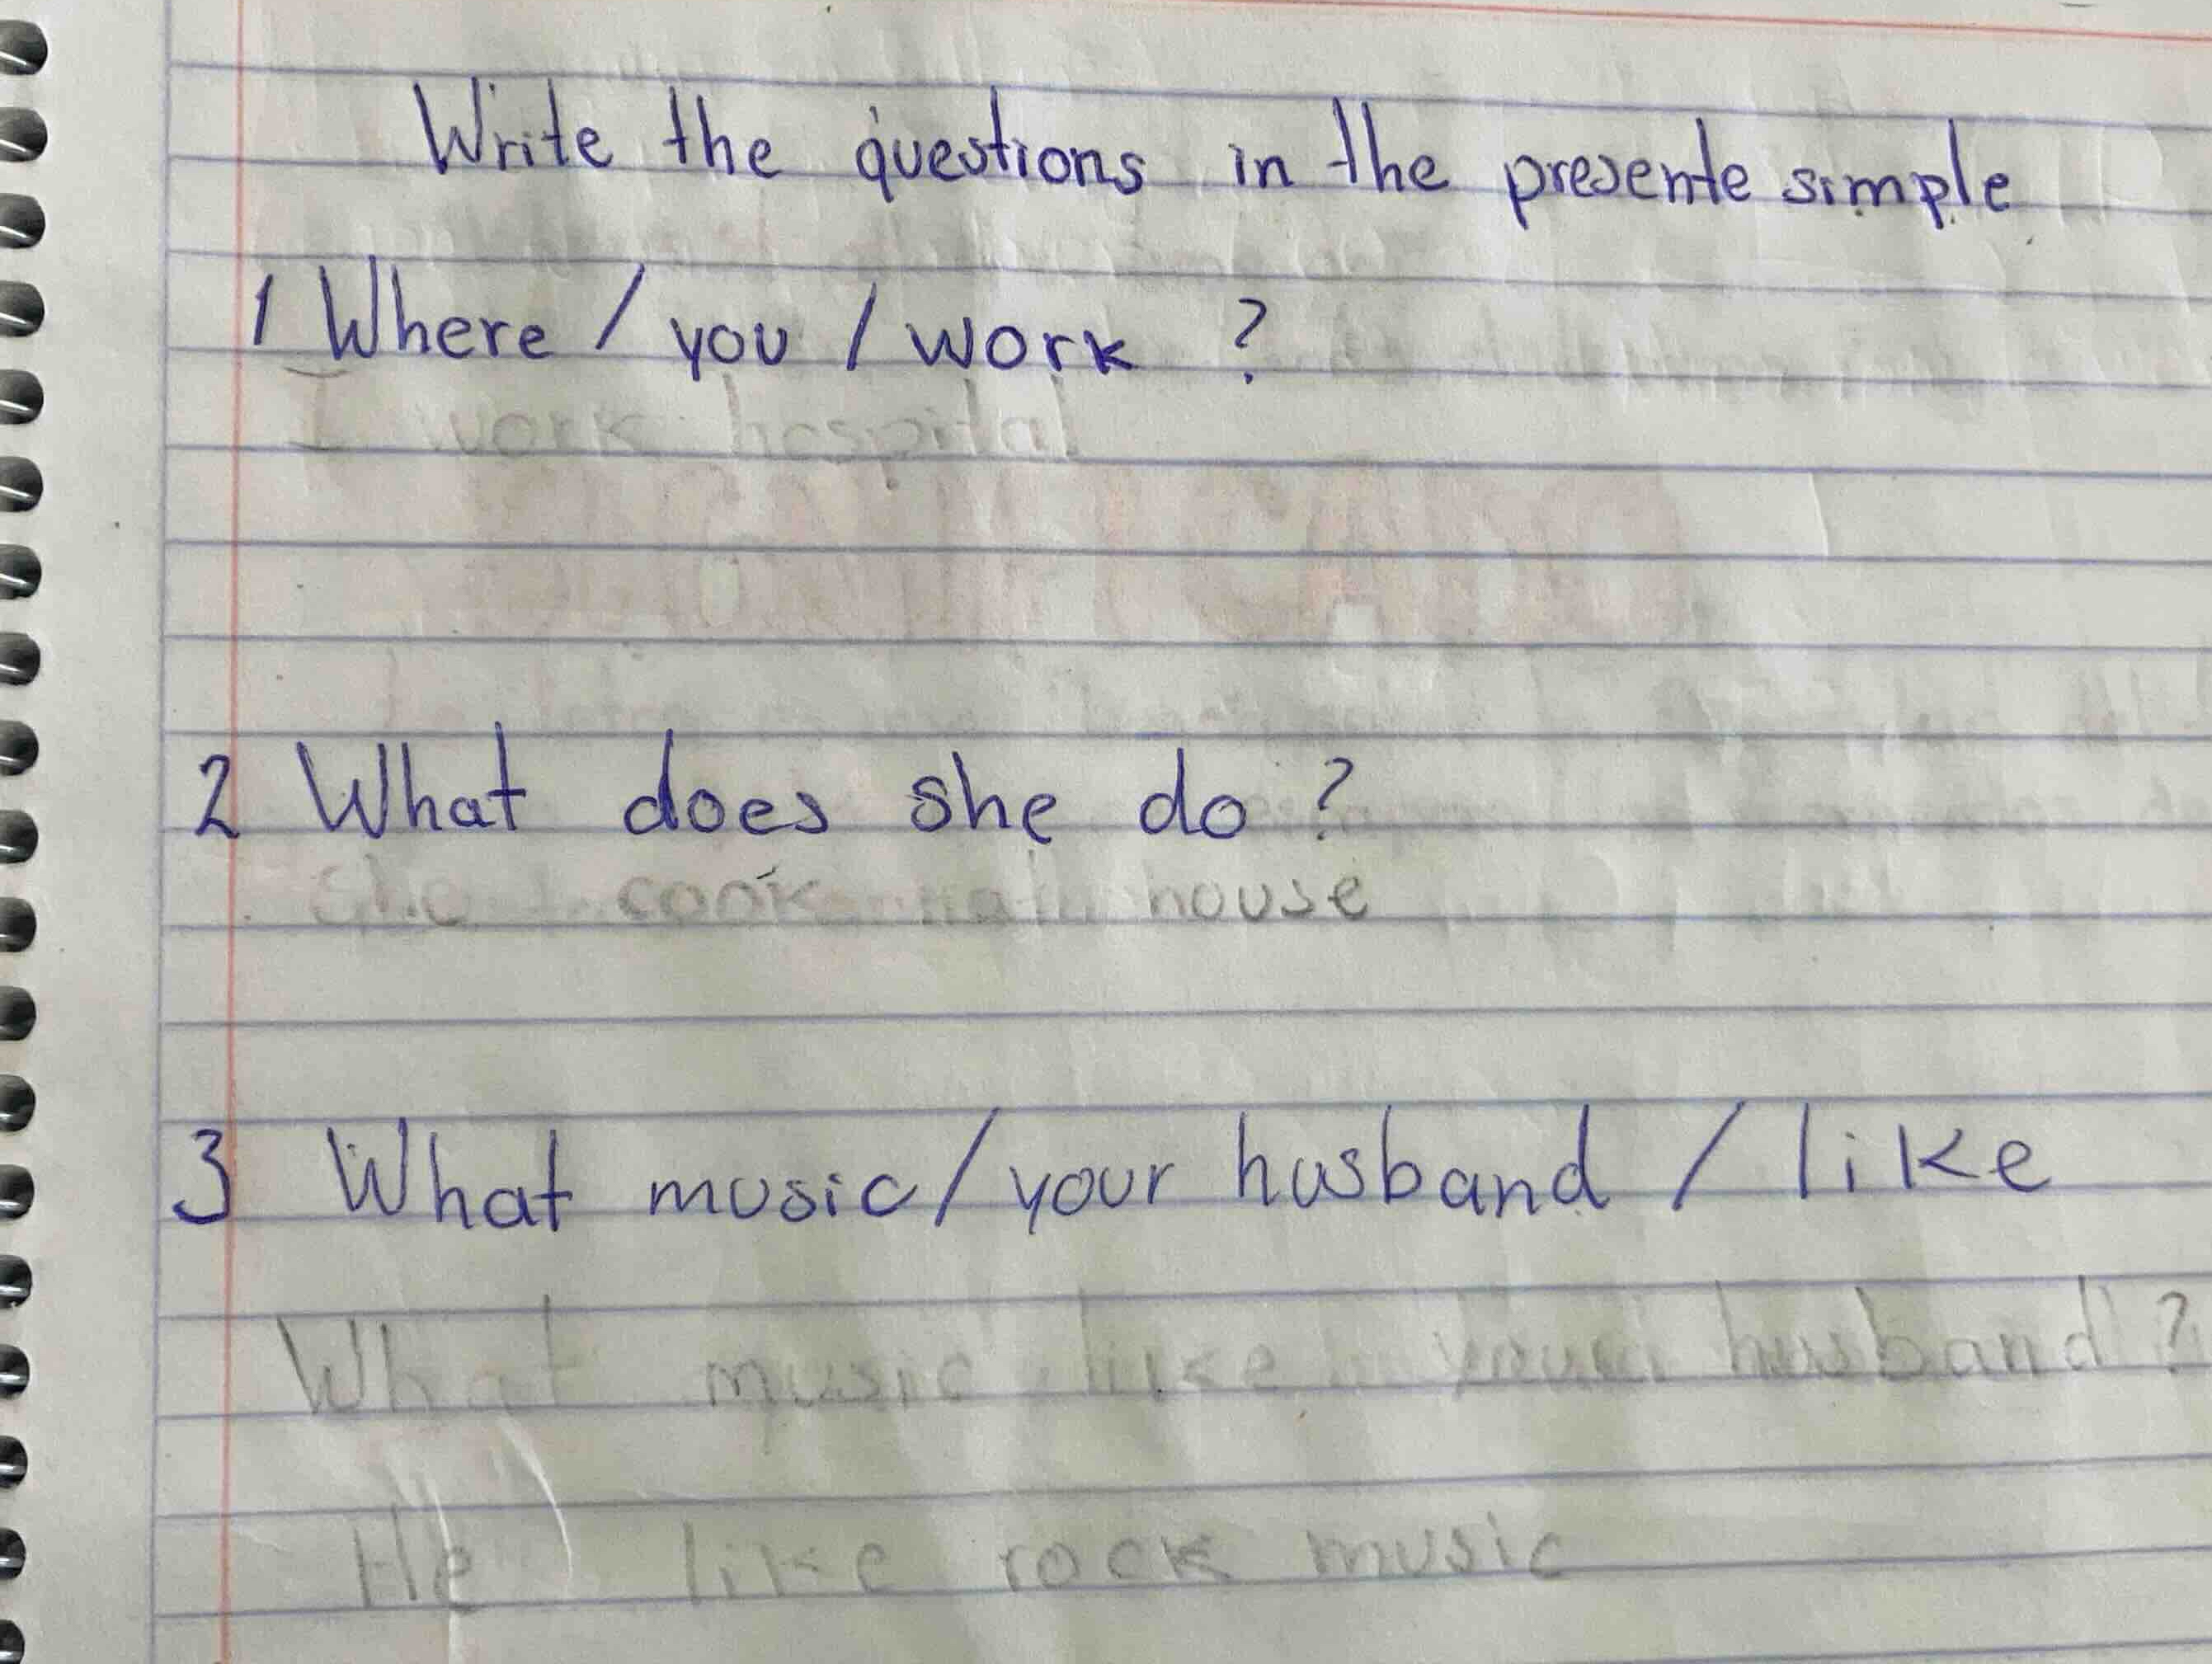 Write the questions in the presente simple
1 Where / you / work ?
I work hospital
2 What does she do ?
She cook house
3 What music / your husband / like
What music like your husband ?
He like rock music